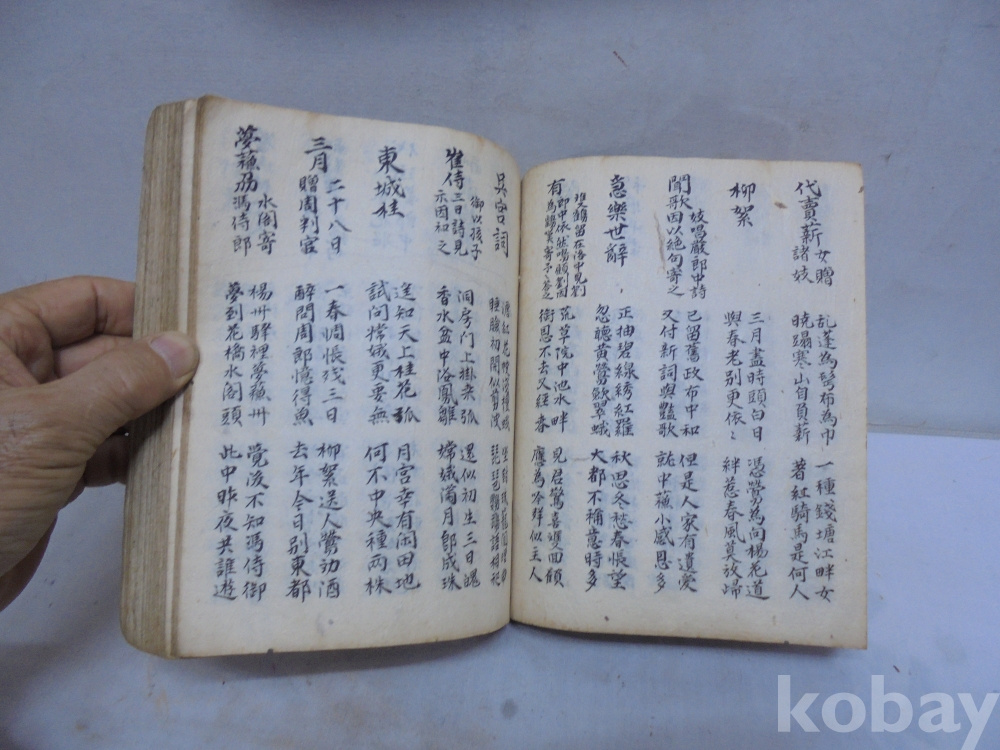 代賣薪女贈
諸妓
乱蓬為鬢布為巾
曉蹋寒山自負薪
一種錢塘江畔女
著紅騎馬是何人
柳絮
三月盡時頭白日
與春老別更依ヽ
憑鶯為向楊花道
絆惹春風莫放歸
聞歌妓唱嚴郎中詩
因以絶句寄之
已留舊政布中和
又付新詞與艶歌
但是人家有遺愛
就中蘇小感恩多
急樂世辭
正抽碧線綉紅羅
忽聽黃鶯歛翠蛾
秋思冬愁春悵望
大都不稱意時多
有雙鶴留在洛中見劉
郎中依然鳴顧劉因
為鶴歎寄予予答之
荒草院中池水畔
銜恩不去又經春
見君驚喜雙回顧
應為吟聲似主人
吳宮詞
淡紅花帔淺檀蛾
睡臉初開似剪波
坐對珠籠閑理曲
琵琶鸚鵡語相和
崔侍御以孩子
三日詩見
示因和之
洞房門上掛桒弧
香水盆中浴鳳雛
還似初生三日魄
嫦娥滿月即成珠
東城桂
遥知天上桂花孤
試問嫦娥更要無
月宮幸有閑田地
何不中央種兩株
三月二十八日
贈周判官
一春惆悵残三日
醉問周郎憶得無
柳絮送人鶯勸酒
去年今日別東都
夢蘇州水閣寄
馮侍郎
楊州驛裡夢蘇州
夢到花橋水閣頭
覺後不知馮侍御
此中昨夜共誰遊
kobay